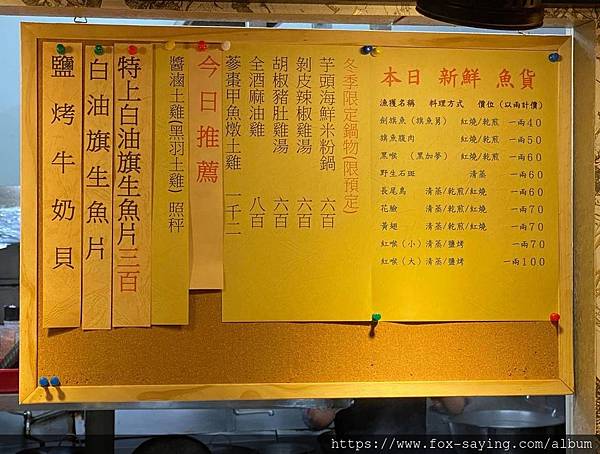 鹽烤牛奶貝
白油旗生魚片
特上白油旗生魚片三百
醬滷土雞(黑羽土雞)照秤
今日推薦
冬季限定鍋物(限預定)
芋頭海鮮米粉鍋 六百
剝皮辣椒雞湯 六百
胡椒豬肚雞湯 六百
全酒麻油雞 八百
蔘棗田魚燉土雞 一千二
本日 新鮮 魚貨
漁獲名稱 料理方式 價位(以兩計價)
劍旗魚(旗魚舅) 紅燒/乾煎 一兩40
旗魚腹肉 紅燒/乾煎 一兩50
黑喉 (黑加夢) 紅燒/乾煎 一兩60
野生石斑 清蒸 一兩60
長尾鳥 清蒸/乾煎/紅燒 一兩60
花臉 清蒸/乾煎/紅燒 一兩70
黃翅 清蒸/乾煎/紅燒 一兩70
紅喉(小)清蒸/鹽烤 一兩70
紅喉(大)清蒸/鹽烤 一兩100
https://www.fox-saying.com/album